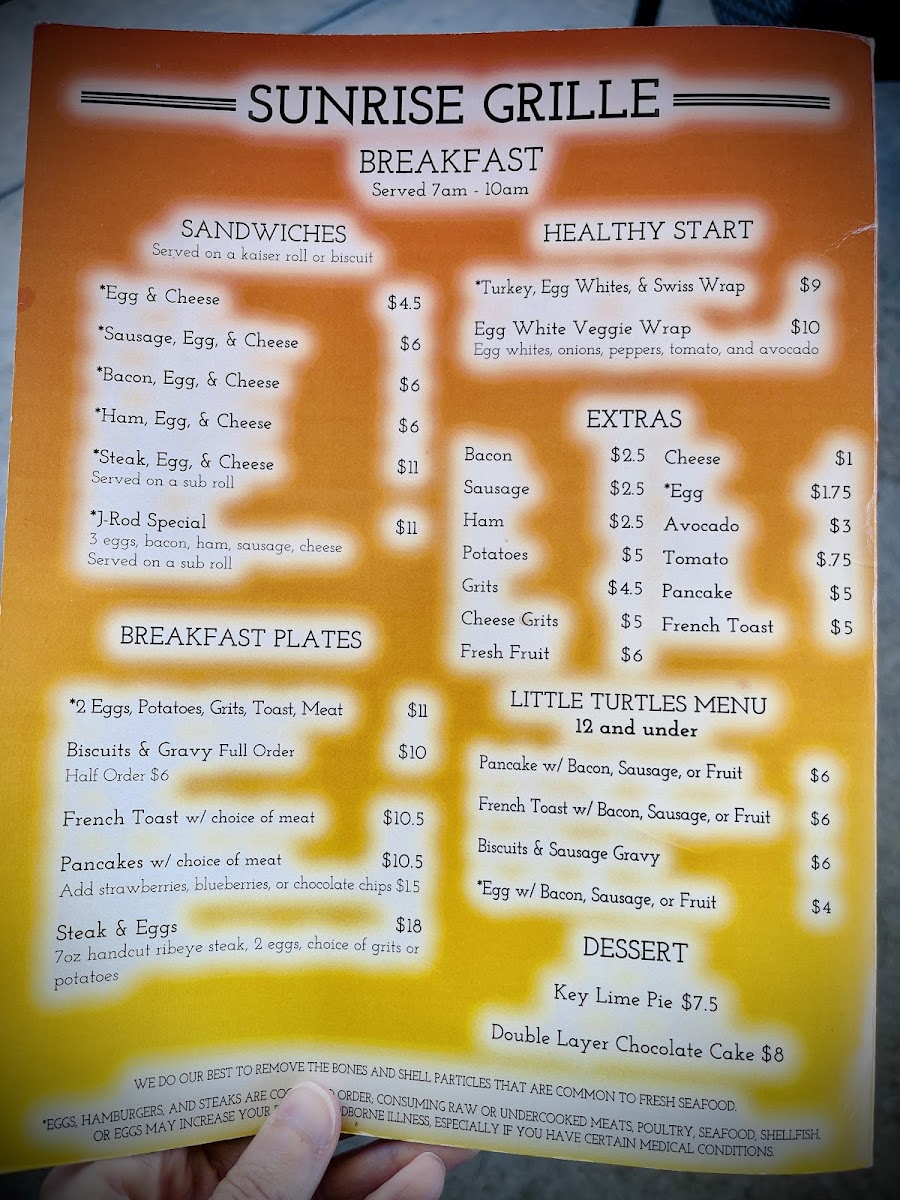 SUNRISE GRILLE
BREAKFAST
Served 7am - 10am
SANDWICHES
Served on a kaiser roll or biscuit
*Egg & Cheese $4.5
*Sausage, Egg, & Cheese $6
*Bacon, Egg, & Cheese $6
*Ham, Egg, & Cheese $6
*Steak, Egg, & Cheese $11
Served on a sub roll
*J-Rod Special $11
3 eggs, bacon, ham, sausage, cheese
Served on a sub roll
BREAKFAST PLATES
*2 Eggs, Potatoes, Grits, Toast, Meat $11
Biscuits & Gravy Full Order $10
Half Order $6
French Toast w/ choice of meat $10.5
Pancakes w/ choice of meat $10.5
Add strawberries, blueberries, or chocolate chips $1.5
Steak & Eggs $18
7oz handcut ribeye steak, 2 eggs, choice of grits or
potatoes
HEALTHY START
*Turkey, Egg Whites, & Swiss Wrap $9
Egg White Veggie Wrap $10
Egg whites, onions, peppers, tomato, and avocado
EXTRAS
Bacon $2.5 Cheese $1
Sausage $2.5 *Egg $1.75
Ham $2.5 Avocado $3
Potatoes $5 Tomato $.75
Grits $4.5 Pancake $5
Cheese Grits $5 French Toast $5
Fresh Fruit $6
LITTLE TURTLES MENU
12 and under
Pancake w/ Bacon, Sausage, or Fruit $6
French Toast w/ Bacon, Sausage, or Fruit $6
Biscuits & Sausage Gravy $6
*Egg w/ Bacon, Sausage, or Fruit $4
DESSERT
Key Lime Pie $7.5
Double Layer Chocolate Cake $8
WE DO OUR BEST TO REMOVE THE BONES AND SHELL PARTICLES THAT ARE COMMON TO FRESH SEAFOOD.
*EGGS, HAMBURGERS, AND STEAKS ARE ORDER; CONSUMING RAW OR UNDERCOOKED MEATS, POULTRY, SEAFOOD, SHELLFISH,
OR EGGS MAY INCREASE YOUR ILLNESS, ESPECIALLY IF YOU HAVE CERTAIN MEDICAL CONDITIONS.